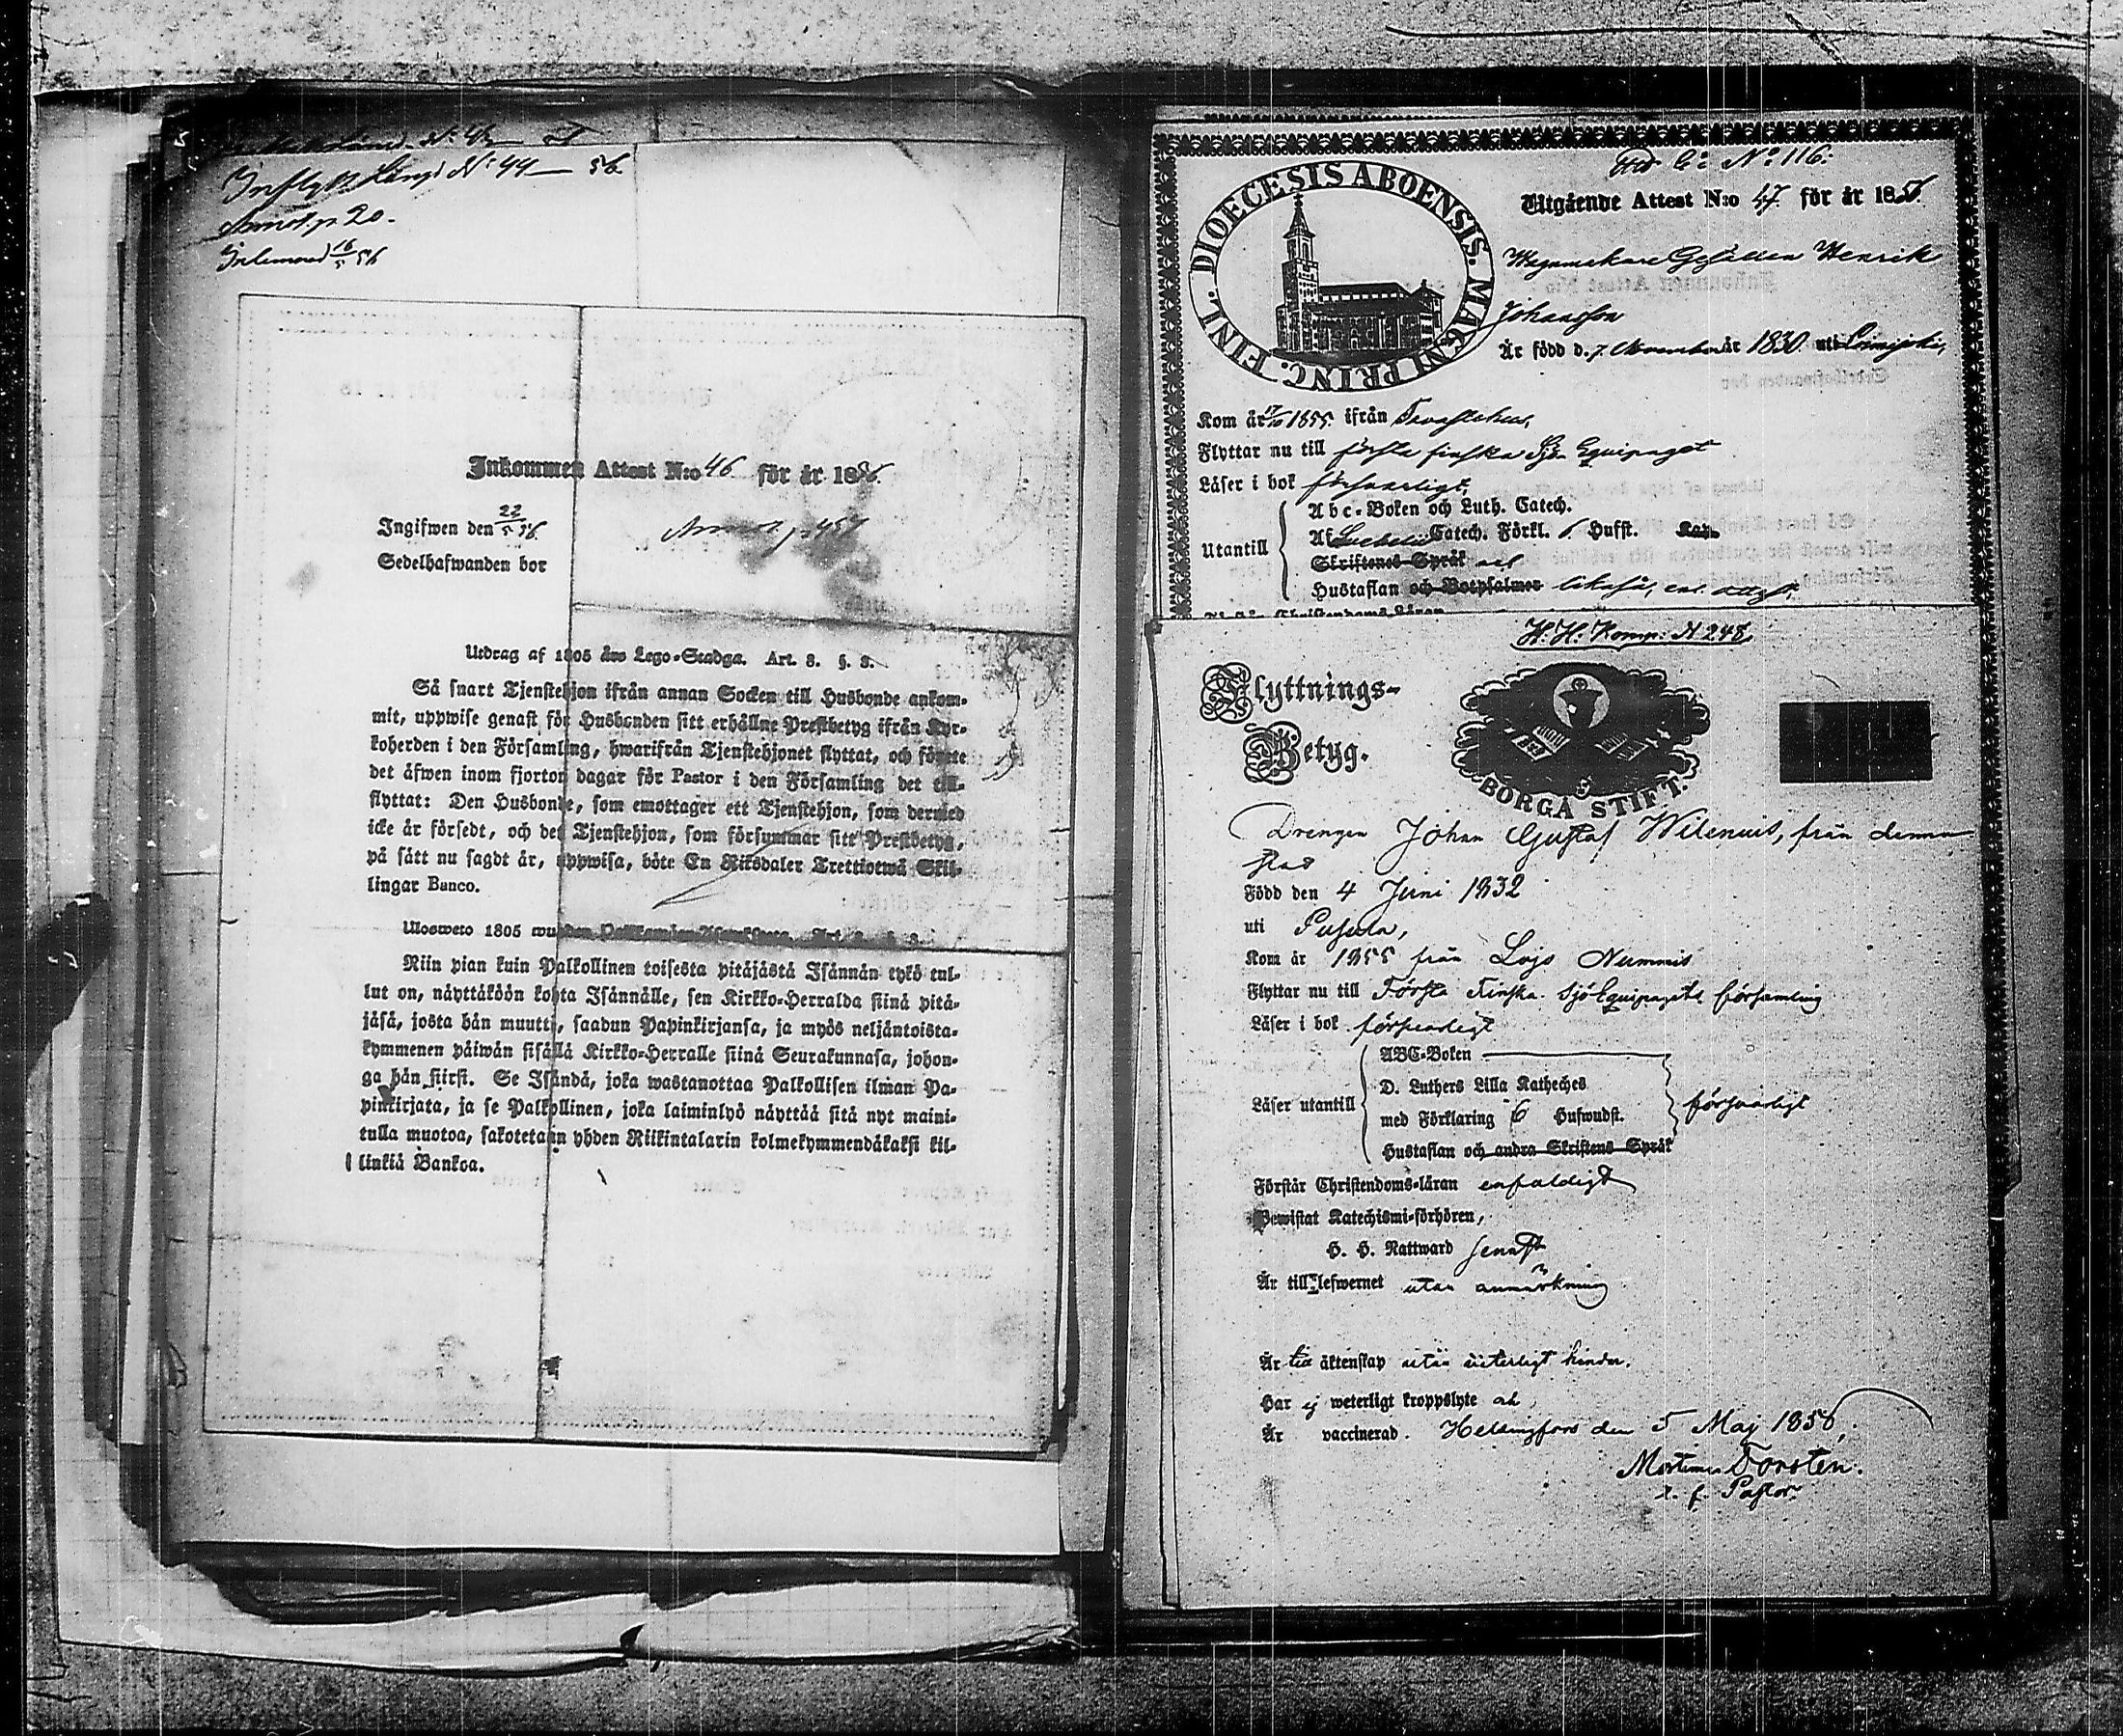 Inflytt. Längd № 44 — 56.
Annot. p. 20.
Inlemnad 16/5 56
Inkommen Attest N:o 46 för år 1856.
Ingifwen den 22/5 56.
Annot. p 457
Sedelhafwanden bor
Utdrag af 1805 års Lego-Stadga. Art. 8. §. 8.
Så snart Tjenstehjon ifrån annan Socken till Husbonde ankom-
mit, uppwise genast för Husbonden sitt erhållne Prestbetyg ifrån Kyr-
koherden i den Församling, hwarifrån Tjenstehjonet flyttat, och förete
det äfwen inom fjorton dagar för Pastor i den Församling det till-
flyttat: Den Husbonde, som emottager ett Tjenstehjon, som dermed
icke är försedt, och det Tjenstehjon, som försummar sitt Prestbetyg,
på sätt nu sagdt är, uppwisa, böte En Riksdaler Trettiotwå Skil-
lingar Banco.
Ulosweto 1805 wuoden Palkkawäen Asetuksesta. Art. 8. §. 8.
Niin pian kuin Palkollinen toisesta pitäjästä Isännän tykö tul-
lut on, näyttäköön kohta Isännälle, sen Kirkko-Herralda siinä pitä-
jäsä, josta hän muutti, saadun Papinkirjansa, ja myös neljäntoista-
kymmenen päiwän sisällä Kirkko-Herralle siinä Seurakunnasa, johon-
ga hän siirsi. Se Isändä, joka wastanottaa Palkollisen ilman Pa-
pinkirjata, ja se Palkollinen, joka laiminlyö näyttää sitä nyt maini-
tulla muotoa, sakotetaan yhden Riikintalarin kolmekymmendäkaksi kil-
linkiä Bankoa.
N:o 116.
DIOECESIS ABOENSIS. MAGNI PRINC. FINL.
Utgående Attest N:o 47. för år 1856.
Wagnmakare Gesällen Henrik
Johansson
Är född d. 7. November år 1830. uti Loimijoki,
Kom år 1855. ifrån Tavastehus,
Flyttar nu till första finska Sjö Equipaget
Läser i bok försvarligt,
Utantill
Abc-Boken och Luth. Catech.
Af Catech. Förkl. 6. Hufst. Kap.
Skriftenes Språk
Hustaflan och Botpsalmer likaså, enl. attest,
Christendoms-Läran
H. H. Komp. N 248,
Flyttnings-
Betyg.
BORGÅ STIFT.
Drengen Johan Gustaf Wilenius, från denna
stad
Född den 4 Juni 1832
uti Pusula,
Kom år 1855 från Lojo Nummis
Flyttar nu till Första Finska Sjö Equipagets församling
Läser i bok försvarligt
Läser utantill
ABC-Boken
D. Luthers Lilla Katheches
med Förklaring 6 Hufwudst.
Hustaflan och andra Skriftens Språk
försvarligt
Förstår Christendoms-läran enfaldigt
Bewistat Katechismi-förhören,
H. H. Nattward senast
Är till lefwernet utan anmärkning
Är till äktenskap utan veterligt hinder.
Har ej weterligt kroppslyte och
Är vaccinerad. Helsingfors den 5 Maj 1856.
Mårtens Forstén.
v. f. Pastor